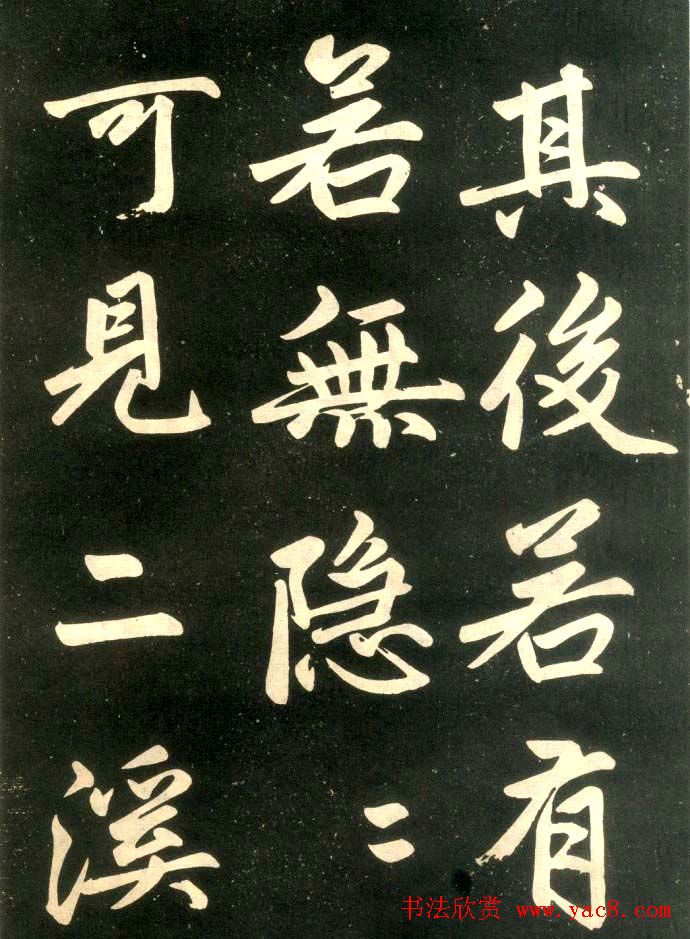 其後若有
若無隐〻
可見二溪
书法欣赏 www.yac8.com